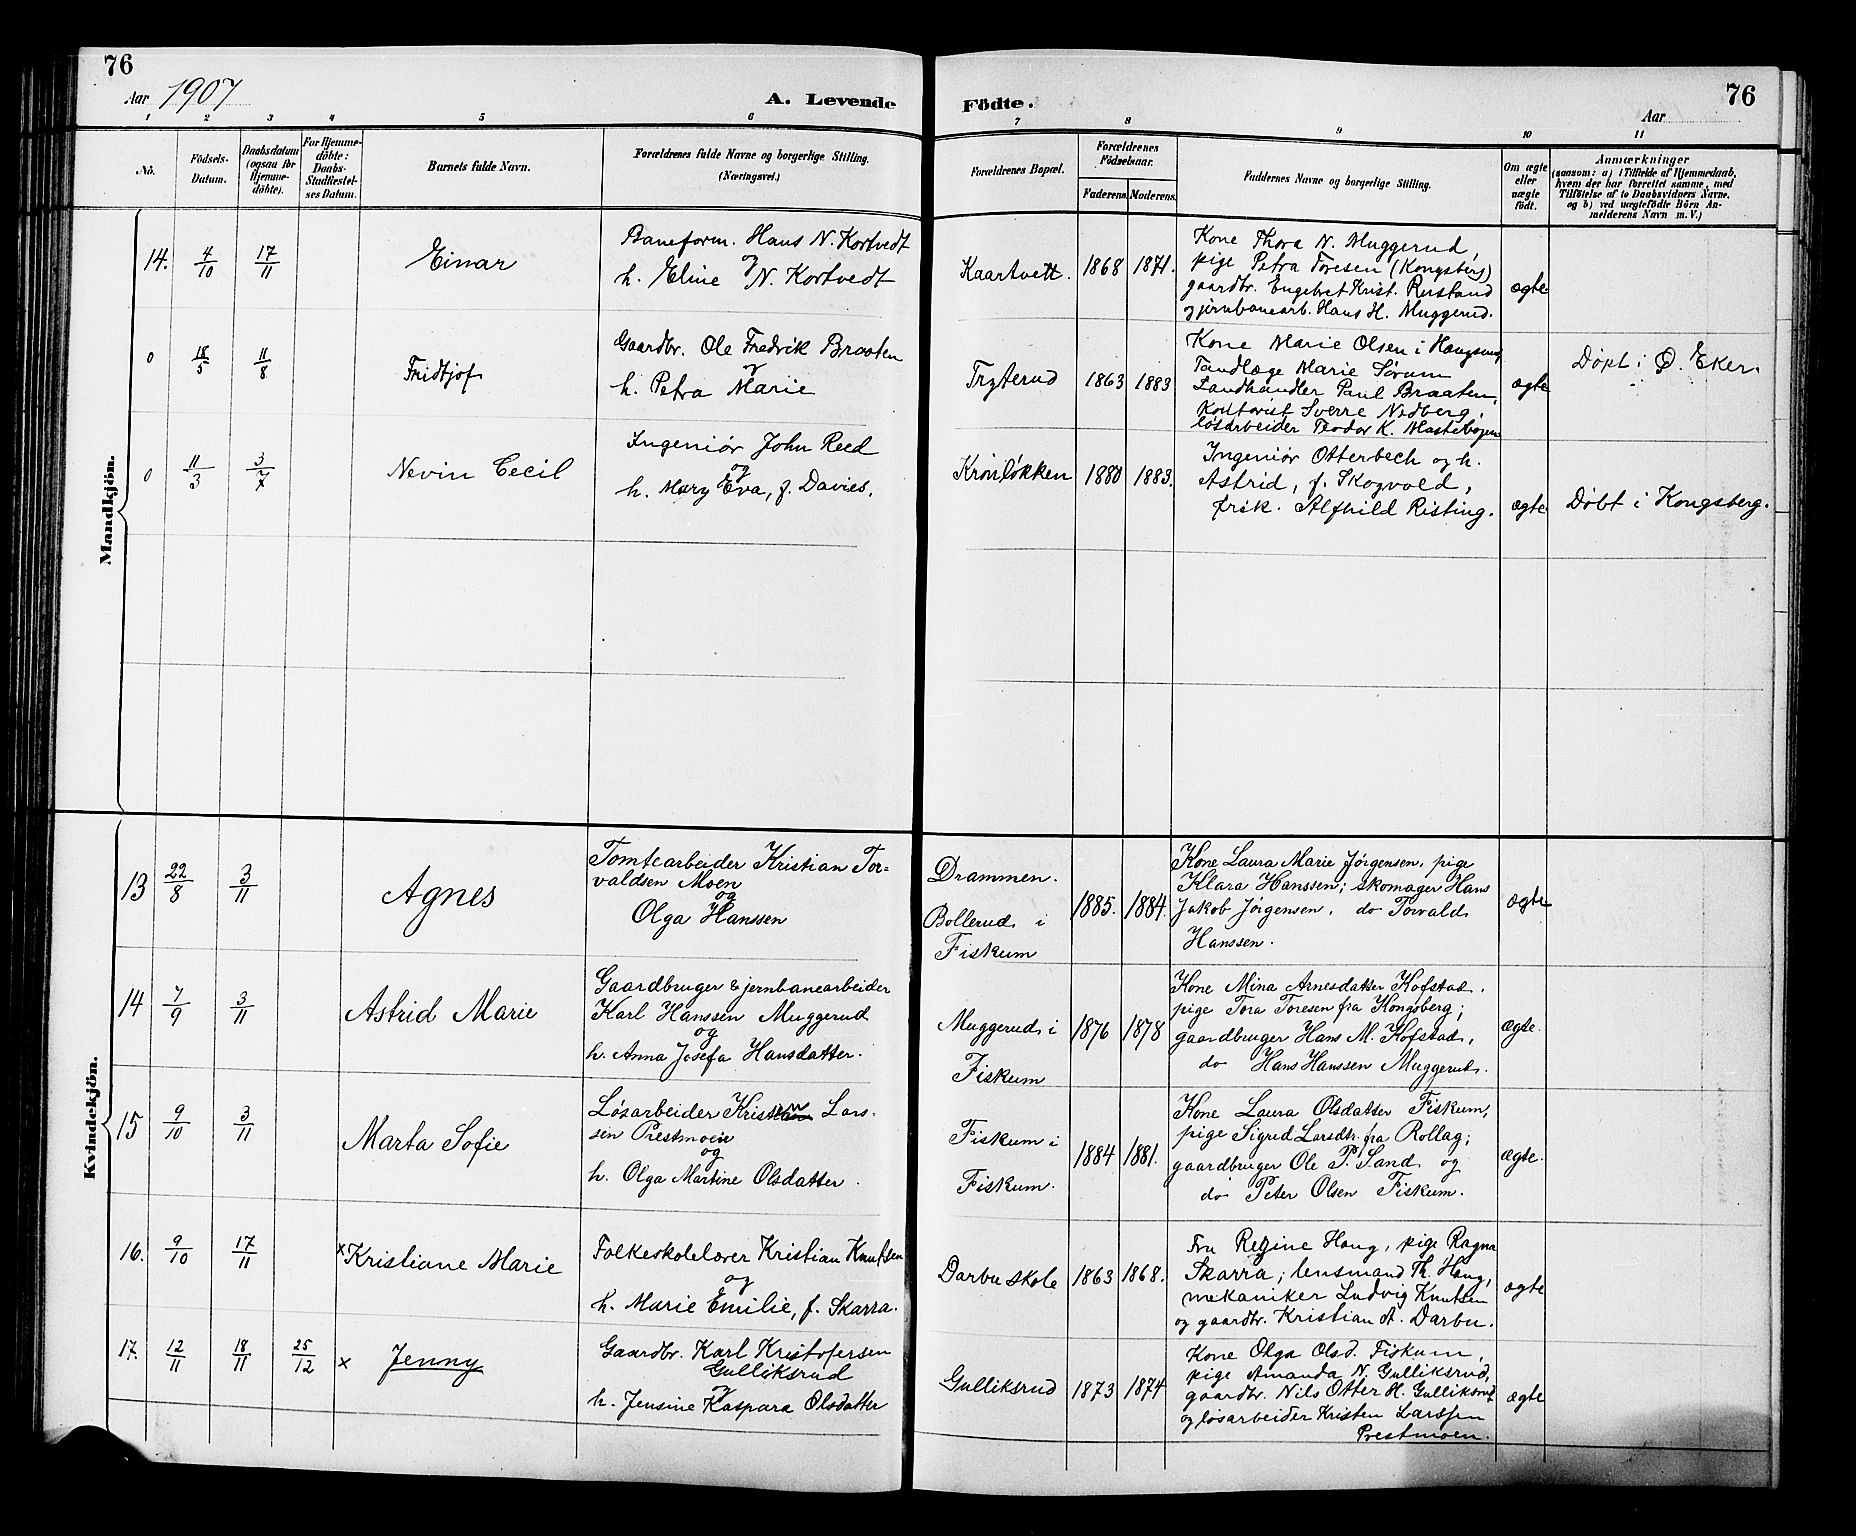 76
Aar 1907
A. Levende
Födte.
76
Aar
1 2 3 4 5 6 7 8 9 10 11
No.
Födsels-
Datum.
Daabsdatum
(ogsaa for
Hjemme-
döbte).
For Hjemme-
döbte:
Daabs-
Stadfæstel-
ses Datum.
Barnets fulde Navn.
Forældrenes fulde Navne og borgerlige Stilling.
(Næringsvei.)
Forældrenes Bopæl.
Forældrenes
Födselsaar.
Faderens.
Moderens.
Faddernes Navne og borgerlige Stilling.
Om ægte
eller
uægte
födt.
Anmærkninger
(saasom: a) i Tilfælde af Hjemmedaab,
hvem der har forrettet samme, med
Tilföielse af to Daabsvidners Navne,
og b) ved uægtefödte Börn An-
melderens Navn m. V.)
Mandkjön.
14. 4/10 17/11 Einar
Baneform. Hans N. Kortvedt
og
h. Eline N. Kortvedt
Kaartvett. 1868 1871.
Kone Thora N. Muggerud,
pige Petra Toresen (Kongsberg)
gaardbr. Engebret Krist. Rustand
og jernbanearb. Hans H. Muggerud.
ægte
0 18/5 11/8 Fridtjof
Gaardbr. Ole Fredrik Braaten
og
h. Petra Marie
Tryterud 1863 1883
Kone Marie Olsen i Haugsund,
Tandlæge Marie Sørum
Landhandler Paul Braaten,
Kontorist Sverre Nedberg,
løsarbeider Teodor K. Mastebogen
ægte
Døpt i Ø. Eker.
0 11/3 3/7 Nevin Cecil
Ingeniør John Reed
og
h. Mary Eva, f. Davies.
Krønløkken 1880 1883.
Ingeniør Otterbech og h.
Astrid, f. Skogvold,
frøk. Alfhild Risting.
ægte
Døbt i Kongsberg.
Kvindekjön.
13 22/8 3/11 Agnes
Tomtearbeider Kristian Tor-
valdsen Moen
og
Olga Hanssen
Drammen.
Bollerud i
Fiskum
1885. 1884.
Kone Laura Marie Jørgensen, pige
Klara Hanssen; skomager Hans
Jakob Jørgensen, do Torvald
Hanssen.
ægte
14 7/9 3/11 Astrid Marie
Gaardbruger & jernbanearbeider
Karl Hanssen Muggerud
og
h. Anna Josefa Hansdatter.
Muggerud i
Fiskum
1876 1878
Kone Mina Arnesdatter Hofstad,
pige Tora Toresen fra Kongsberg;
gaardbruger Hans M. Hofstad,
do Hans Hanssen Muggerud.
ægte.
15 9/10 3/11 Marta Sofie
Løsarbeider Kristen Lars-
sen Prestmoen
og
h. Olga Martine Olsdatter.
Fiskum i
Fiskum.
1884 1881.
Kone Laura Olsdatter Fiskum,
pige Sigrud Larsdtr. fra Rollag;
gaardbruger Ole P. Sand og
do Peter Olsen Fiskum.
ægte.
16. 9/10 17/11 x Kristiane Marie
Folkeskolelærer Kristian Knutsen
og
h. Marie Emilie, f. Skarra.
Darbu skole 1863 1868.
Fru Regine Haug, pige Ragna
Skarra; lensmand Th. Haug,
mekaniker Ludvig Knutsen
og gaardbr. Kristian A. Darbu.
ægte
17. 12/11 18/11 25/12 x Jenny
Gaardbr. Karl Kristofersen
Gulliksrud
og
h. Jensine Kaspara Olsdatter
Gulliksrud 1873 1874
Kone Olga Olsd. Fiskum,
pige Amanda N. Gulliksrud,
gaardbr. Nils Otter H. Gulliksrud
og løsarbeider Kristen Larssen
Prestmoen.
ægte